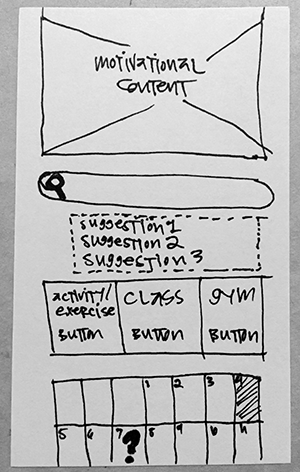 motivational
content
suggestion 1
suggestion 2
suggestion 3
activity/
exercise
button
CLASS
button
gym
button
1 2 3 4
5 6 7 ? 8 9 10 11